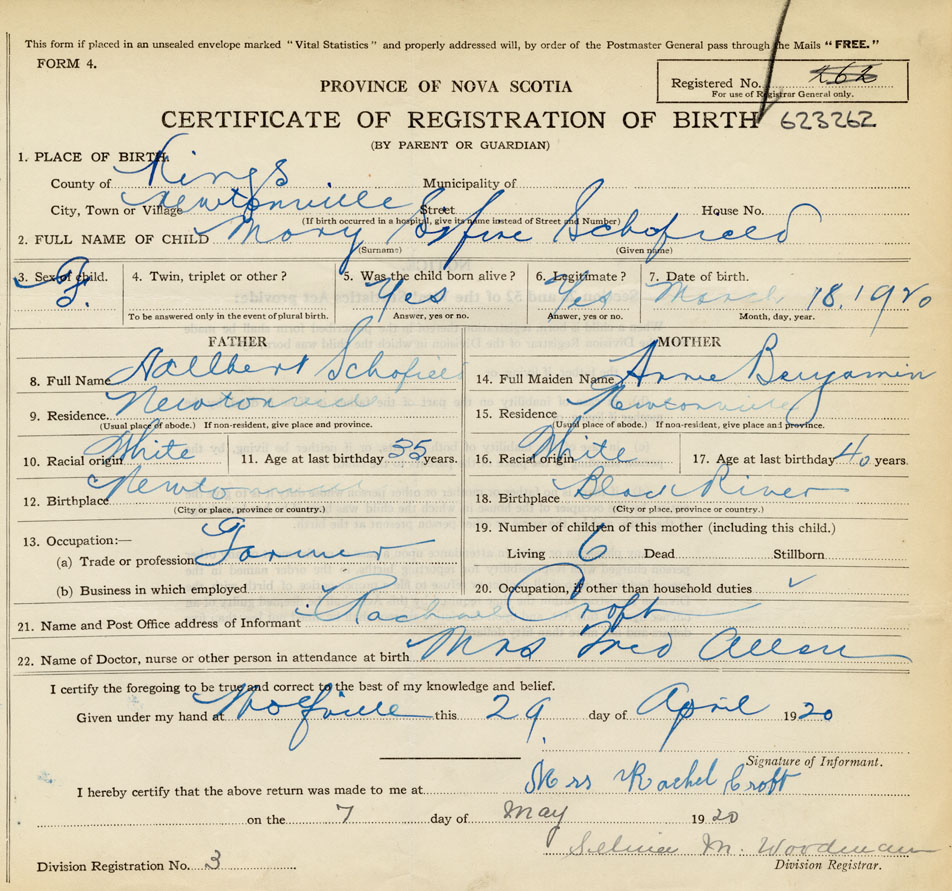 This form if placed in an unsealed envelope marked "Vital Statistics" and properly addressed will, by order of the Postmaster General pass through the Mails "FREE."
FORM 4.
PROVINCE OF NOVA SCOTIA
Registered No.
For use of Registrar General only.
CERTIFICATE OF REGISTRATION OF BIRTH 623262
(BY PARENT OR GUARDIAN)
1. PLACE OF BIRTH
County of Kings Municipality of
City, Town or Village Newtonville Street House No.
(If birth occurred in a hospital, give its name instead of Street and Number)
2. FULL NAME OF CHILD Mary Schofield
(Surname) (Given name)
3. Sex of child. F. 4. Twin, triplet or other? 5. Was the child born alive? Yes 6. Legitimate? Yes 7. Date of birth. March 18. 1920
To be answered only in the event of plural birth. Answer, yes or no. Answer, yes or no. Month, day, year.
FATHER
8. Full Name Schofield
9. Residence Newtonville
(Usual place of abode.) If non-resident, give place and province.
10. Racial origin White 11. Age at last birthday 35 years.
12. Birthplace Newtonville
(City or place, province or country.)
13. Occupation:—
(a) Trade or profession Farmer
(b) Business in which employed
MOTHER
14. Full Maiden Name Annie Benjamin
15. Residence Newtonville
(Usual place of abode.) If non-resident, give place and province.
16. Racial origin White 17. Age at last birthday 40 years.
18. Birthplace Black River
(City or place, province or country.)
19. Number of children of this mother (including this child.)
Living 6 Dead Stillborn
20. Occupation, if other than household duties ✓
21. Name and Post Office address of Informant Rachael Croft
22. Name of Doctor, nurse or other person in attendance at birth Mrs Fred Allen
I certify the foregoing to be true and correct to the best of my knowledge and belief.
Given under my hand at Wolfville this 29 day of April 1920
Signature of Informant.
I hereby certify that the above return was made to me at Mrs Rachel Croft
on the 7 day of May 1920
M. Woodman
Division Registration No. 3 Division Registrar.